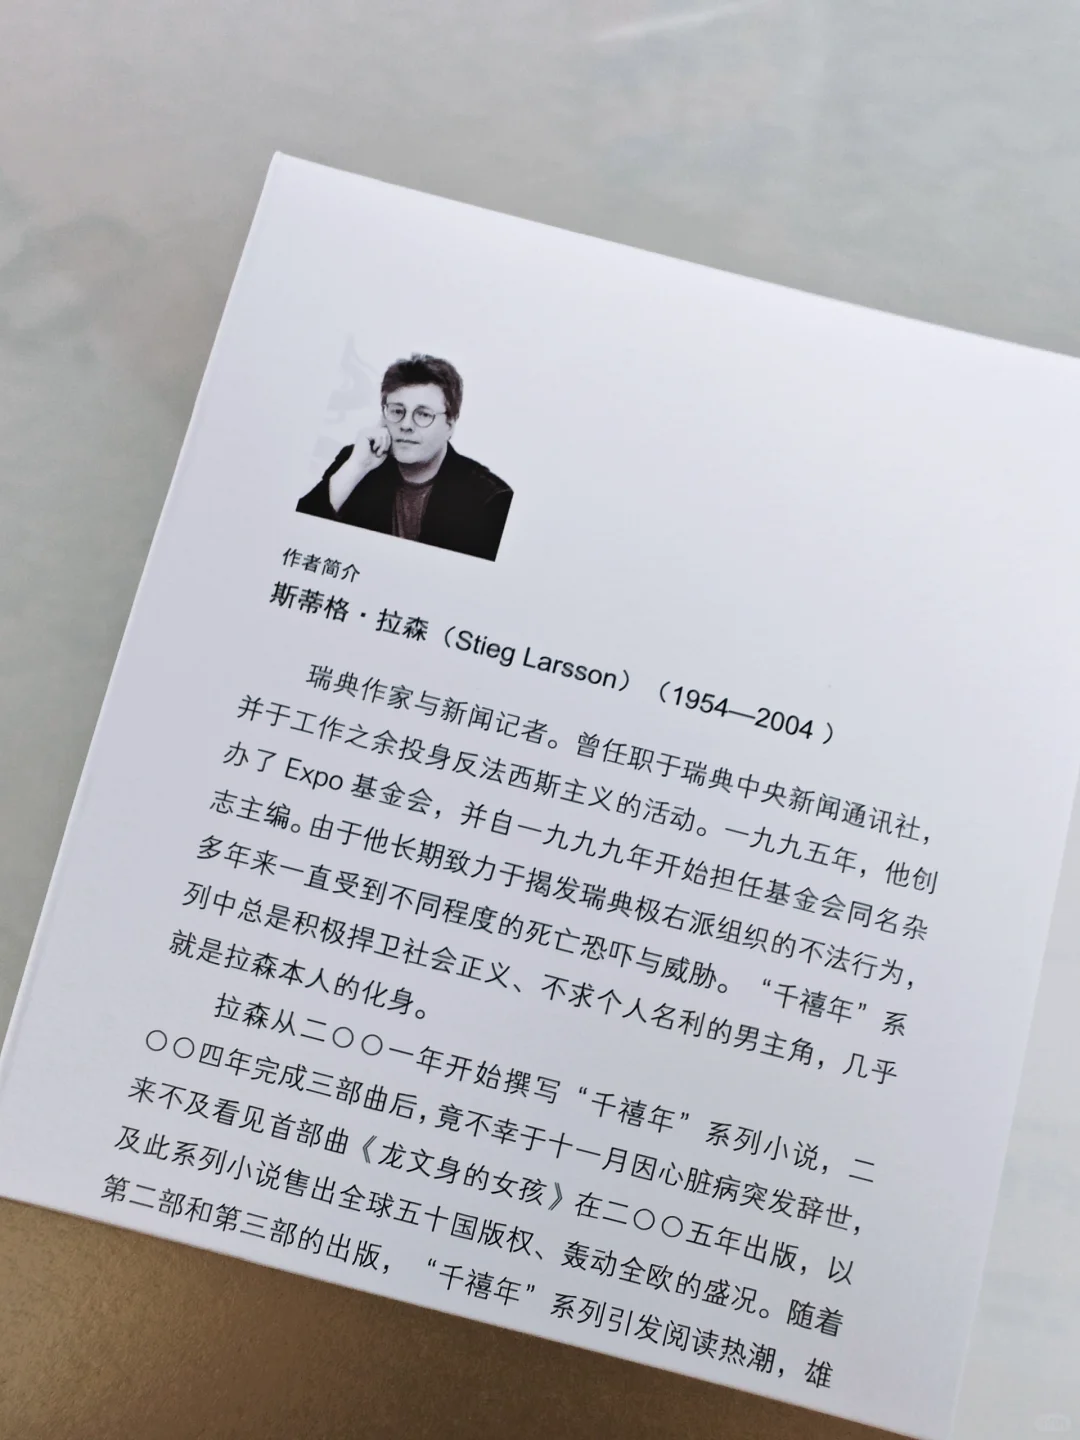 作者简介
斯蒂格·拉森（Stieg Larsson）（1954—2004）
瑞典作家与新闻记者。曾任职于瑞典中央新闻通讯社，
并于工作之余投身反法西斯主义的活动。一九九五年，他创
办了 Expo 基金会，并自一九九九年开始担任基金会同名杂
志主编。由于他长期致力于揭发瑞典极右派组织的不法行为，
多年来一直受到不同程度的死亡恐吓与威胁。“千禧年”系
列中总是积极捍卫社会正义、不求个人名利的男主角，几乎
就是拉森本人的化身。
拉森从二〇〇一年开始撰写“千禧年”系列小说，二
〇〇四年完成三部曲后，竟不幸于十一月因心脏病突发辞世，
来不及看见首部曲《龙文身的女孩》在二〇〇五年出版，以
及此系列小说售出全球五十国版权、轰动全欧的盛况。随着
第二部和第三部的出版，“千禧年”系列引发阅读热潮，雄